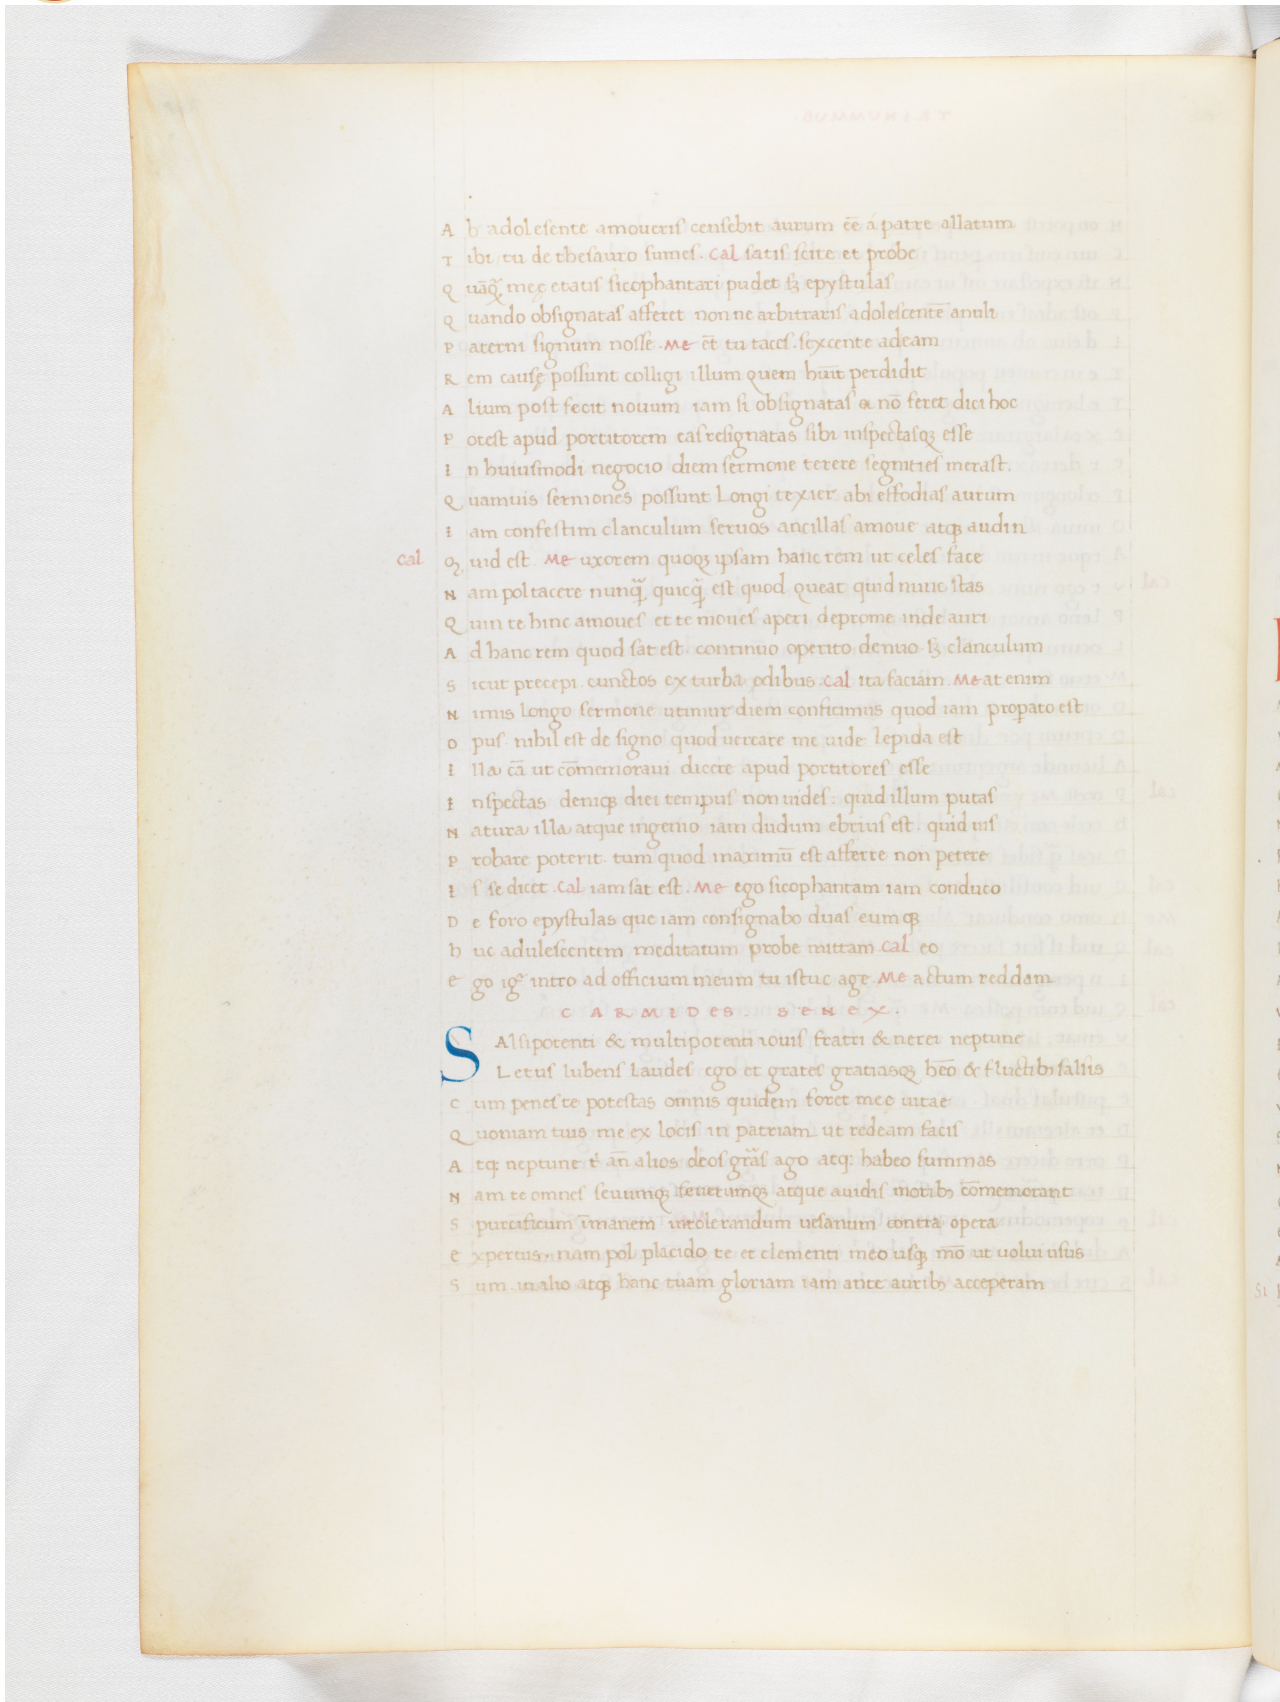 Ab adolesente amoueris censebit aurum eē a patre allatum
Tibi tu de thesauro sumes. Cal satis scite et probe
Quāq̃ meę etatis sicophantari pudet sꝫ epystulas
Quando obsignatas afferet non ne arbitraris adolescentē anuli
Paterni signum nosse. Me et̄ tu taces. sexcente adeam
Rem causę possunt colligi illum quem huit̄ perdidit
Alium post fecit nouum iam si obsignatas a nō feret dici hoc
Potest apud portitorem eas resignatas sibi inspectasqꝫ esse
In huiusmodi negocio diem sermone terere segnities merast.
Quamuis sermones possunt longi texier abi effodias aurum
Iam confestim clanculum seruos ancillas amoue atqꝫ audin
Cal Quid est. Me uxorem quoqꝫ ipsam hanc rem ut celes face
Nam pol tacere nunq̃ quicq̃ est quod queat quid nunc stas
Quin te hinc amoues et te moues aperi deprome inde auri
Ad hanc rem quod sat est. continuo operito denuo sꝫ clanculum
Sicut precepi. cunctos exturba ędibus. Cal ita faciam. Me at enim
Nimis longo sermone utimur diem conficimus quod iam properato est
Opus. nihil est de signo quod uereare me uide lepida est
Illa cā ut cōmemoraui dicere apud portitores esse
Inspectas deniqꝫ diei tempus non uides: quid illum putas
Natura illa atque ingenio iam dudum ebrius est. quid uis
Probare poterit. tum quod maximū est afferre non petere
Is se dicet. Cal iam sat est. Me ego sicophantam iam conduco
De foro epystulas que iam consignabo duas eumqꝫ
Huc adulescentem meditatum probe mittam. Cal eo
Ego igr̄ intro ad officium meum tu istuc age. Me actum reddam
CARMIDES SENEX.
SAlsipotenti & multipotenti iouis fratri & nerei neptune
Letus lubens laudes ego et grates gratiasqꝫ hēo & fluctibꝫ salsis
Cum penes te potestas omnis quidem foret mee uitae
Quoniam tuis me ex locis in patriam ut redeam facis
Atqꝫ neptune t̄ an̄ alios deos grās ago atqꝫ habeo summas
Nam te omnes seuumqꝫ seuerumqꝫ atque auidis moribꝫ cōmemorant
Spurcificum īmanem intolerandum uesanum contra opera
Expertus. nam pol placido te et clementi meo usqꝫ mō ut uolui usus
Sum. in alio atqꝫ hanc tuam gloriam iam ante auribꝫ acceperam